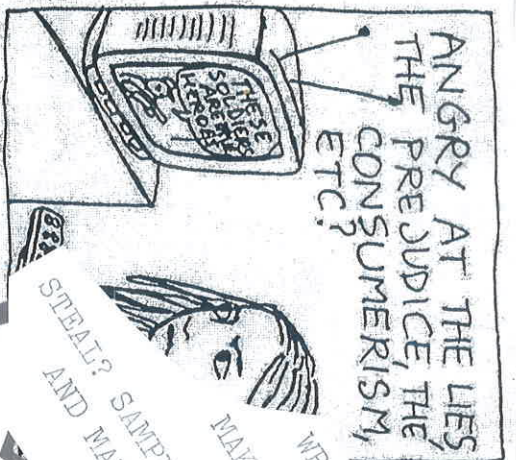 ANGRY AT THE LIES,
THE PREJUDICE, THE
CONSUMERISM,
ETC?
THESE
SOLDIERS
ARE THE
HEROES
STEAL? SAMP
AND MA
MAK
WE